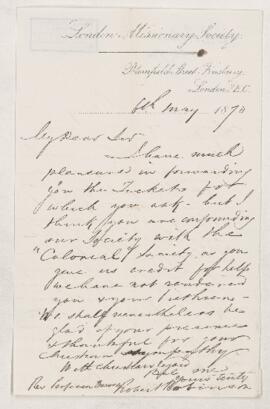 London Missionary Society.
Blomfield Street, Finsbury,
London, E.C.
6th May 1873
My Dear Sir
I have much
pleasure in forwarding
you the Tickets for
which you ask - but I
think you are confounding
our Society with the
"Colonial" Society, as you
give us credit for help
we have not rendered
you & your brethren -
We shall nevertheless be
glad of your presence
& thankful for your
Christian sympathy
With Christian regard
me
yours truly
Robert Robinson